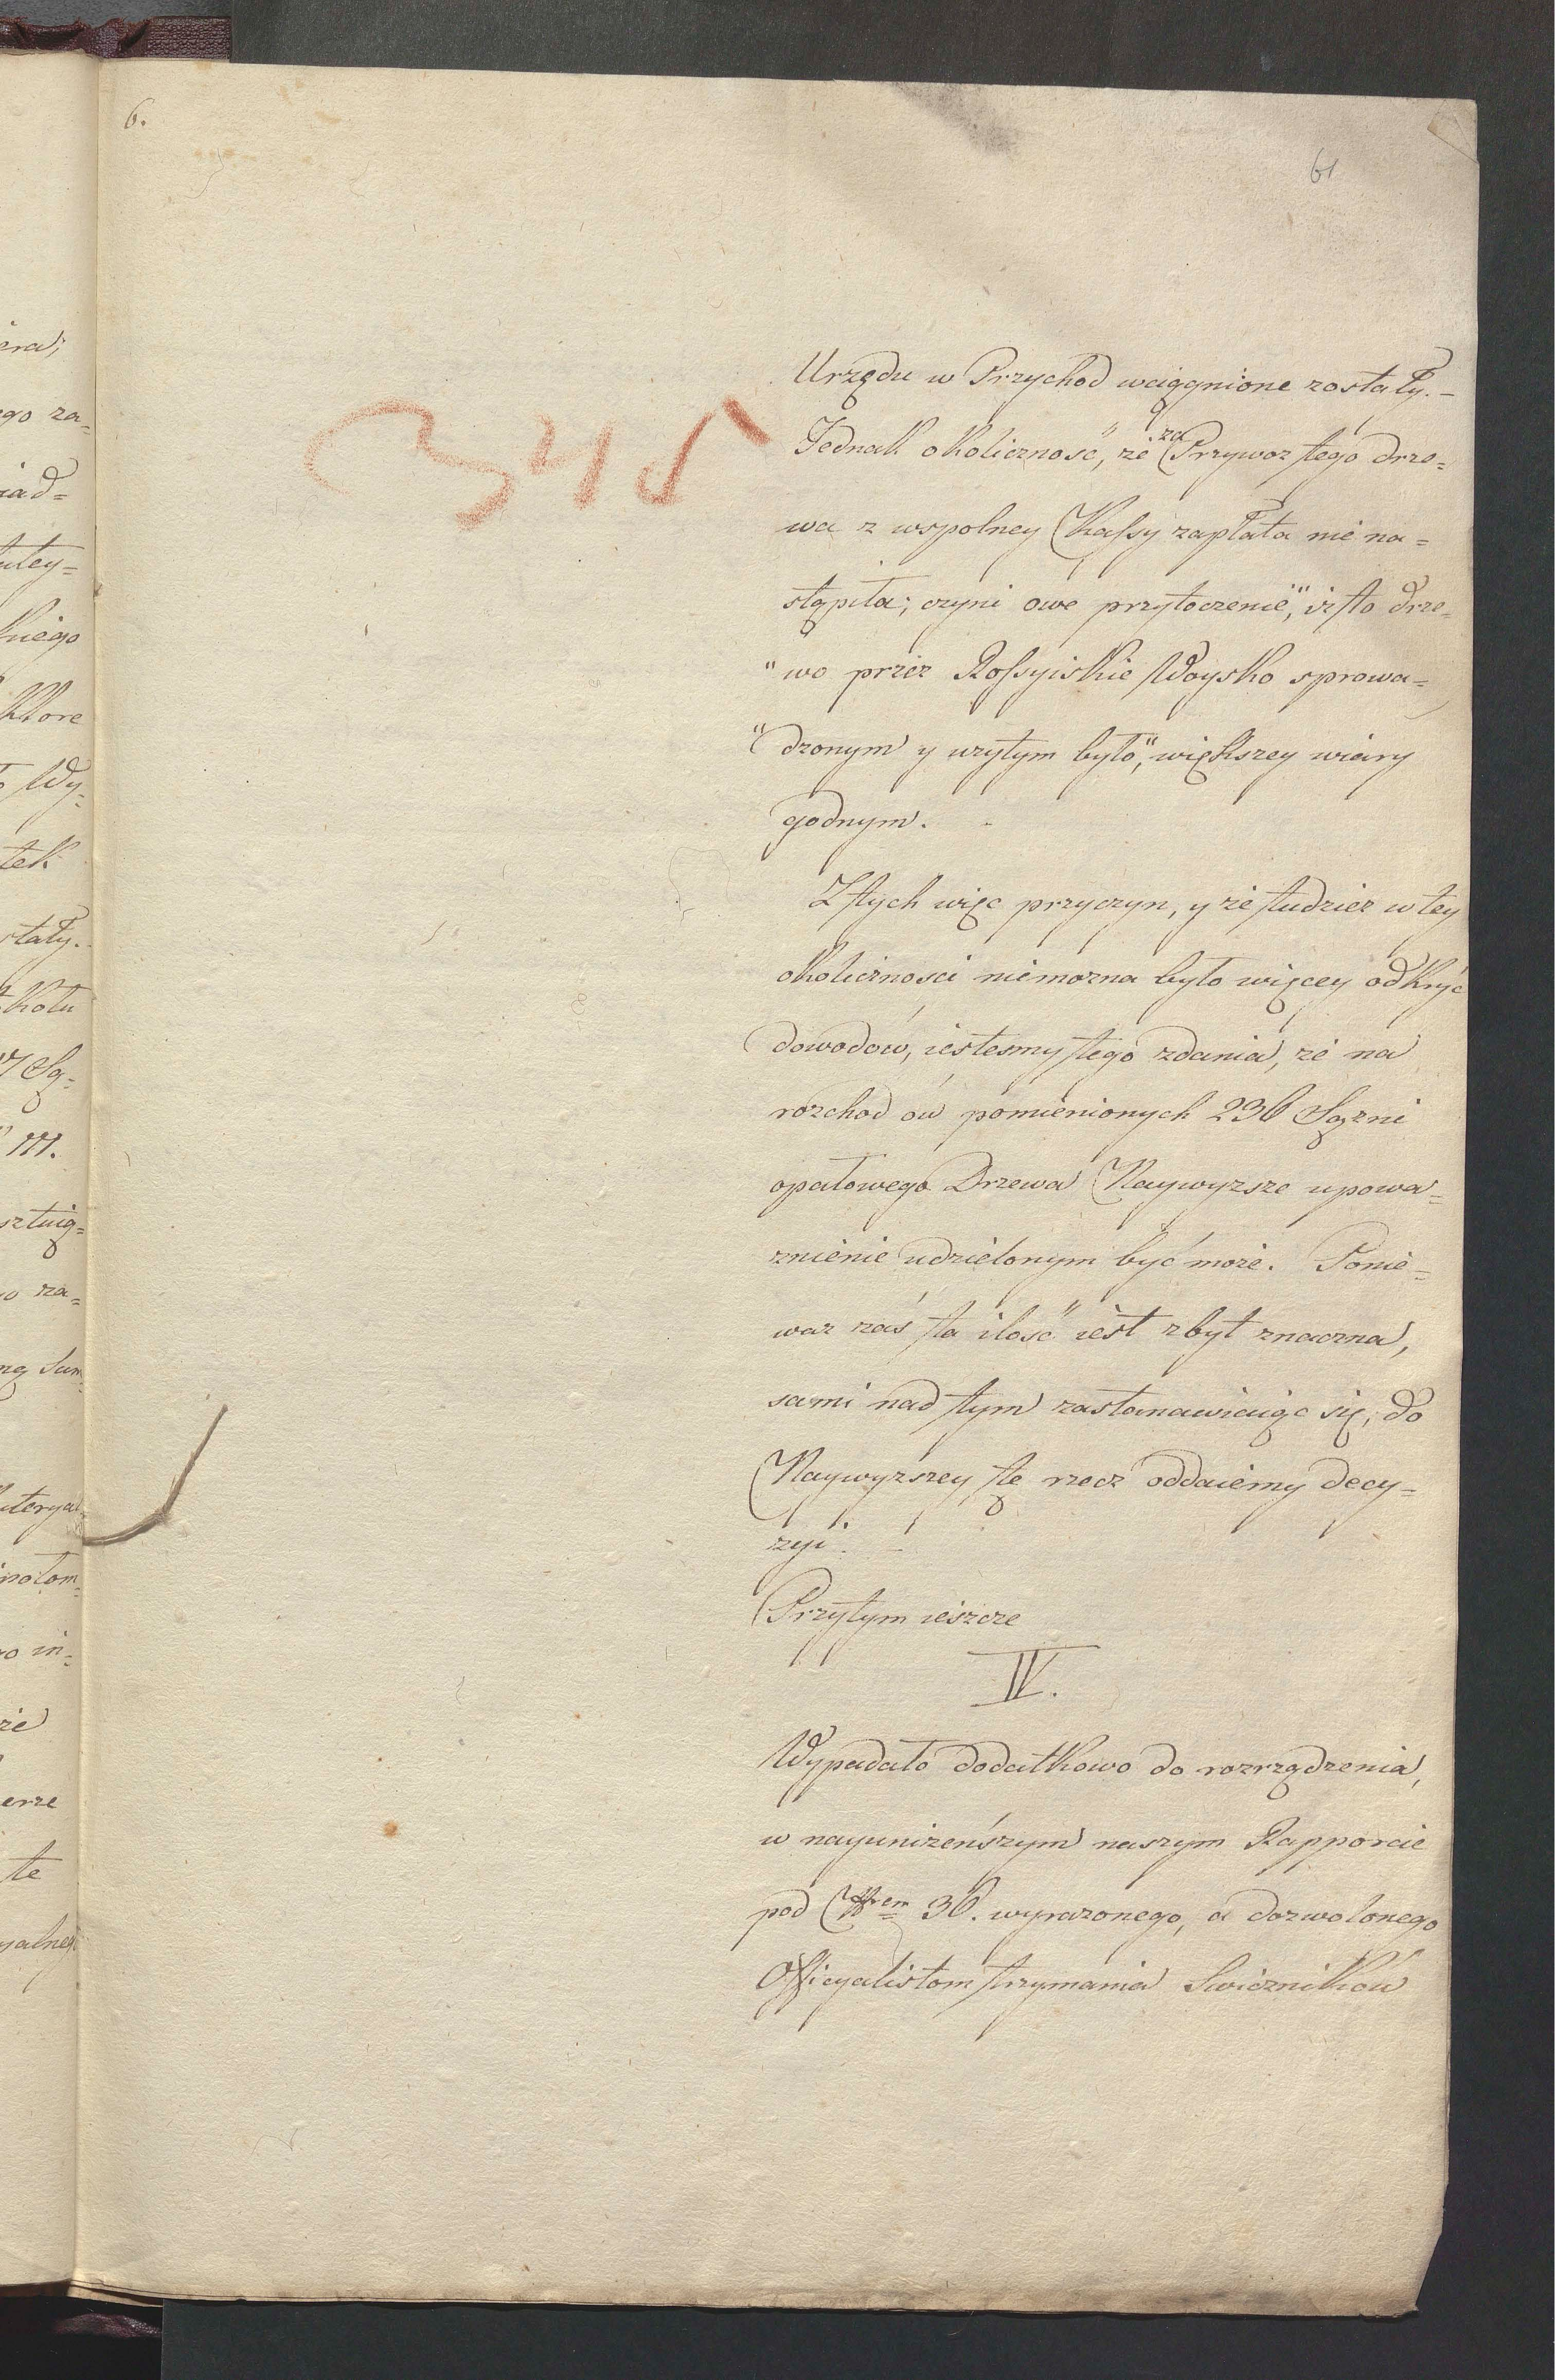 6.
61
345
Urzędu w Przychod wciągnione zostały. –
Jednak okoliczność, że za Przywoz tego drze=
wa z wspolney Kassy zapłata nie na=
stąpiła; czyni owe przytoczenie, "iż to drze=
"wo przez Rossyiskie Woysko sprowa=
"dzonym y użytym było", większey wiary
godnym. –
Z tych więc przyczyn, y że tudzież w tey
okoliczności niemożna było więcey odkryć
dowodow, iestesmy tego zdania, że na
rozchod ów pomienionych 236 Sążni
opałowego Drzewa Naywyższe upowa=
żnienie udzielonym być może. Ponie=
waż zaś ta ilość iest zbyt znaczna,
sami nad tym zastanawiaiąc się, do
Naywyższey tę rzecz oddaiemy decy=
zyi. –
Przytym ieszcze
IV.
Wypadało dodatkowo do rozrządzenia,
w nayuniżeńszym naszym Rapporcie
pod Nrem 36. wyrażonego, a dozwolonego
Officyalistom trzymania Swiczników
era;
ego za=
iad=
utey=
kiego
Ktore
Wy=
tek
stały.
III.
o za=
ną Sum=
o in=
że
erze
te